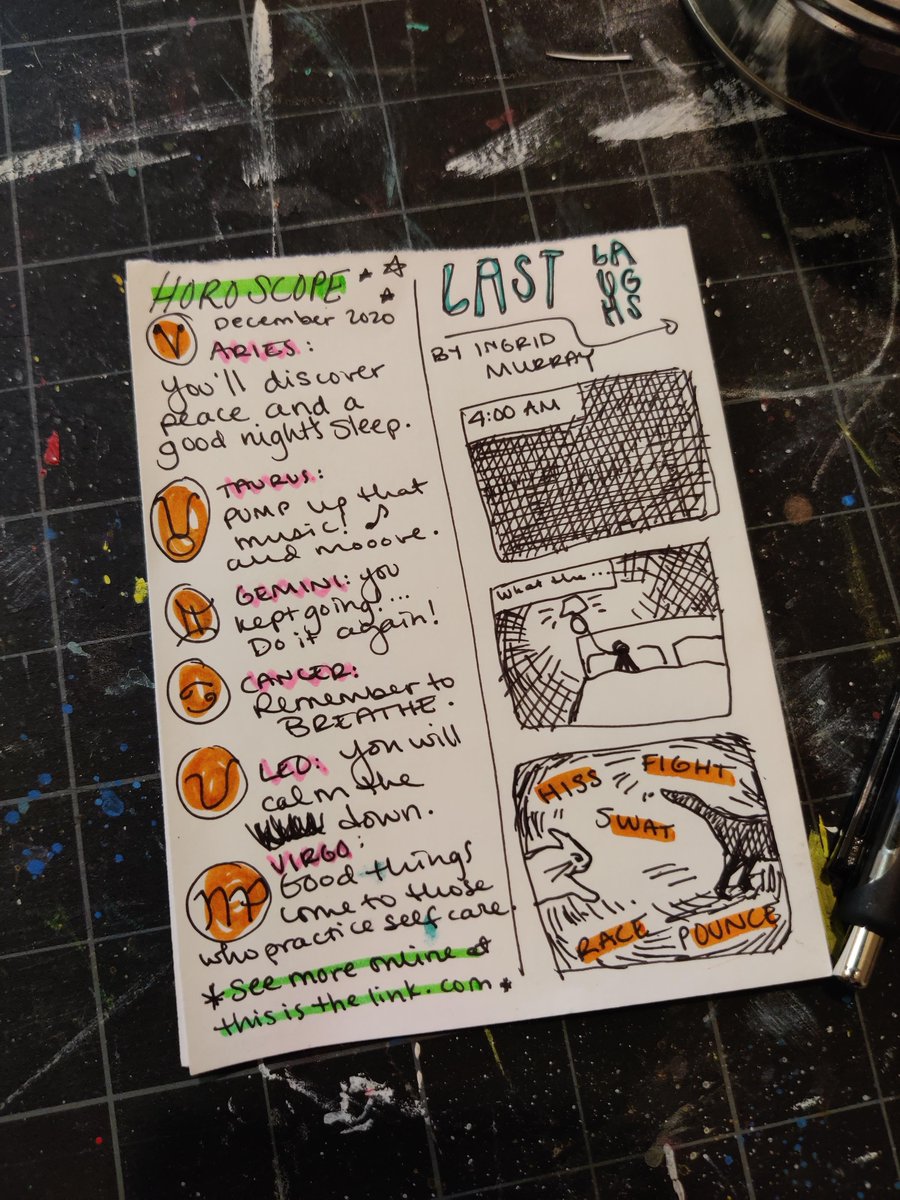 HOROSCOPE
December 2020
ARIES:
You'll discover
peace and a
good nights sleep.
TAURUS:
PUMP up that
music!
and mooove.
GEMINI: you
kept going!...
Do it again!
CANCER:
Remember to
BREATHE.
LEO: you will
calm the
down.
VIRGO:
Good things
come to those
who practice self care.
*See more online @
this is the link.com*
LAST
LA
UG
HS
BY INGRID
MURRAY
4:00 AM
What the...
HISS FIGHT
SWAT
RACE POUNCE